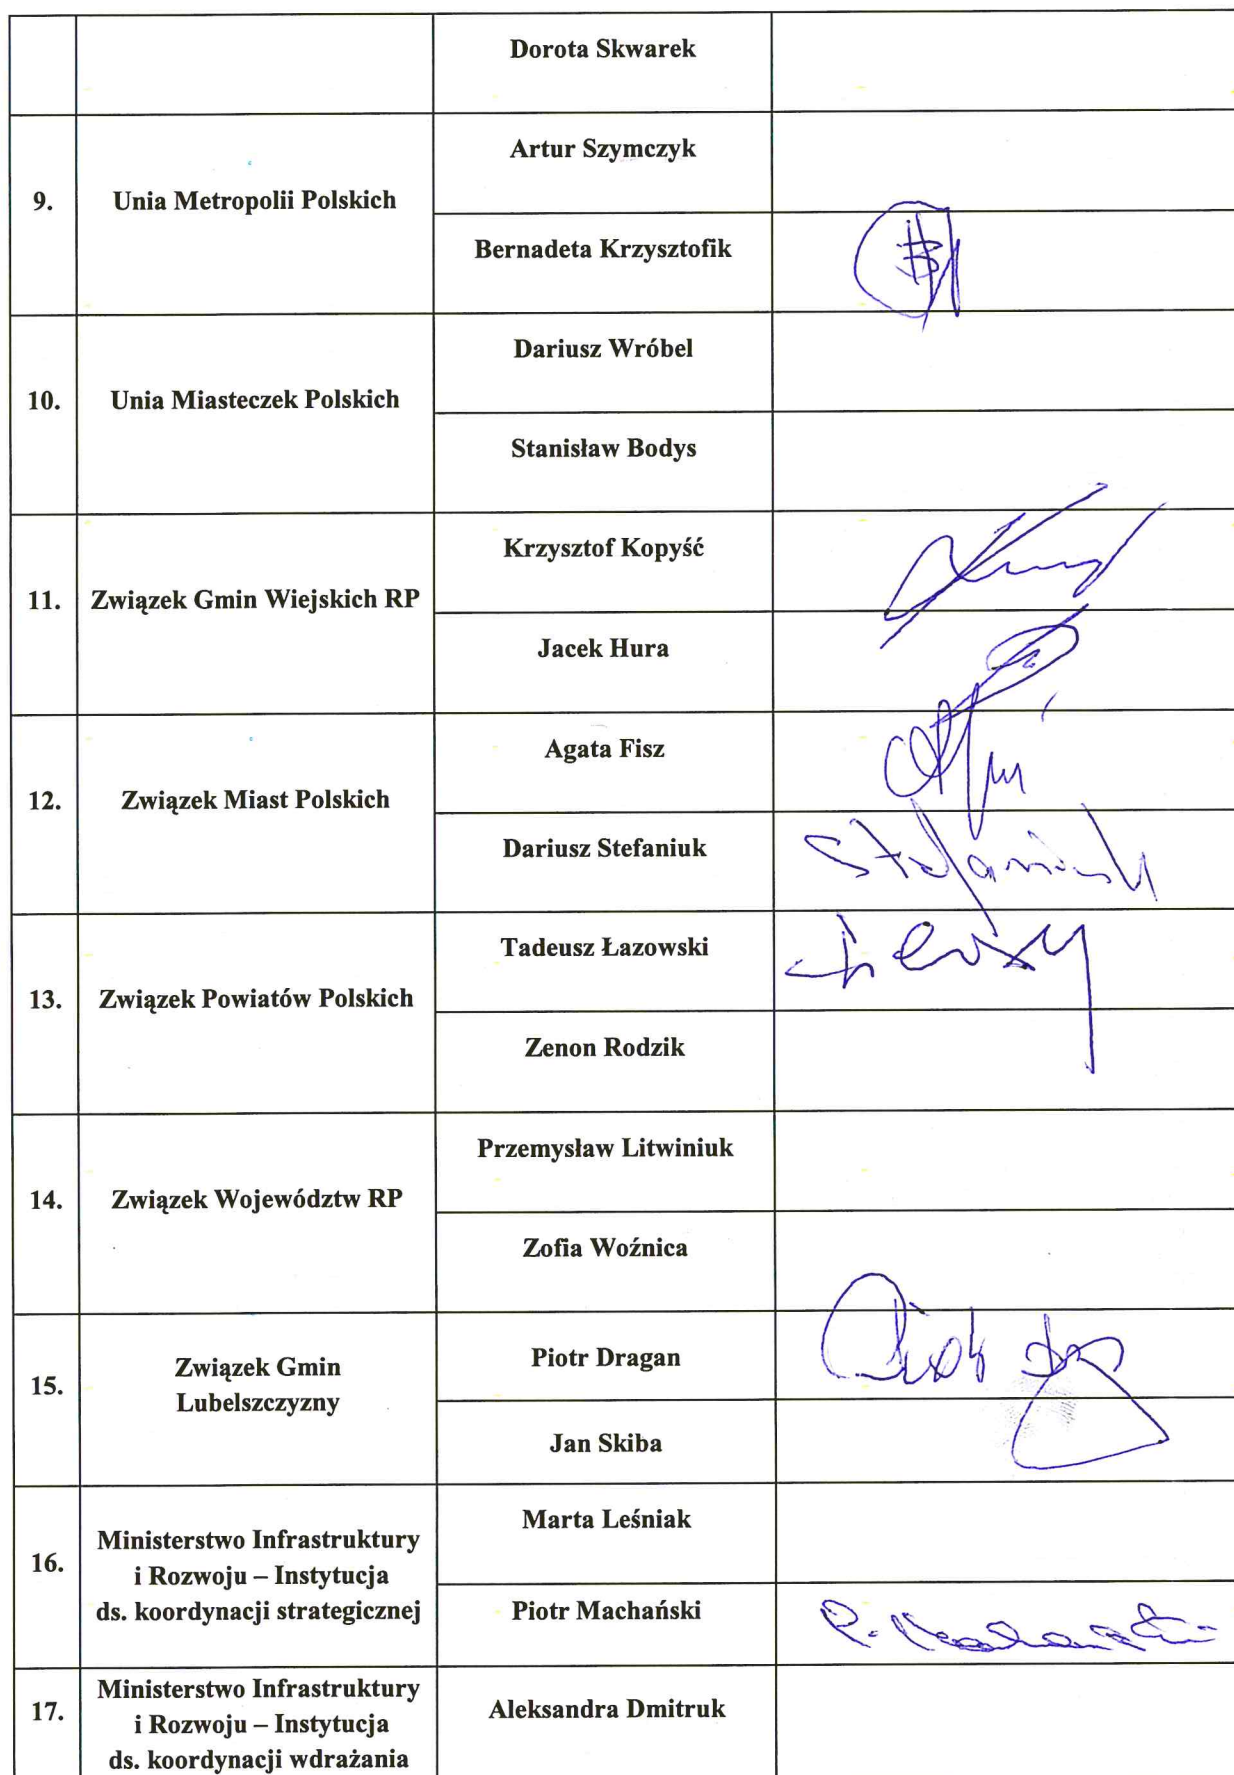 Dorota Skwarek
9.
Unia Metropolii Polskich
Artur Szymczyk
Bernadeta Krzysztofik
10.
Unia Miasteczek Polskich
Dariusz Wróbel
Stanisław Bodys
11.
Związek Gmin Wiejskich RP
Krzysztof Kopyść
Jacek Hura
12.
Związek Miast Polskich
Agata Fisz
Dariusz Stefaniuk
Stefaniuk
13.
Związek Powiatów Polskich
Tadeusz Łazowski
Zenon Rodzik
14.
Związek Województw RP
Przemysław Litwiniuk
Zofia Woźnica
15.
Związek Gmin
Lubelszczyzny
Piotr Dragan
Jan Skiba
16.
Ministerstwo Infrastruktury
i Rozwoju – Instytucja
ds. koordynacji strategicznej
Marta Leśniak
Piotr Machański
P. Machański
17.
Ministerstwo Infrastruktury
i Rozwoju – Instytucja
ds. koordynacji wdrażania
Aleksandra Dmitruk